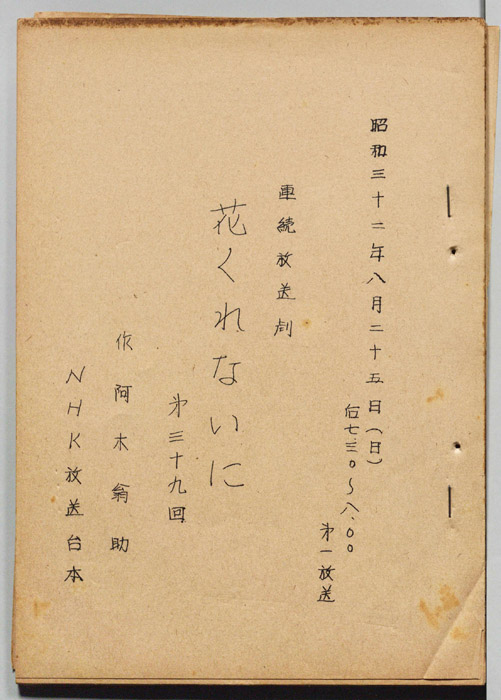 昭和三十二年八月二十五日(日)
后七.三〇～八.〇〇
第一放送
連続放送劇
花くれないに
第三十九回
作 阿木翁助
NHK放送台本